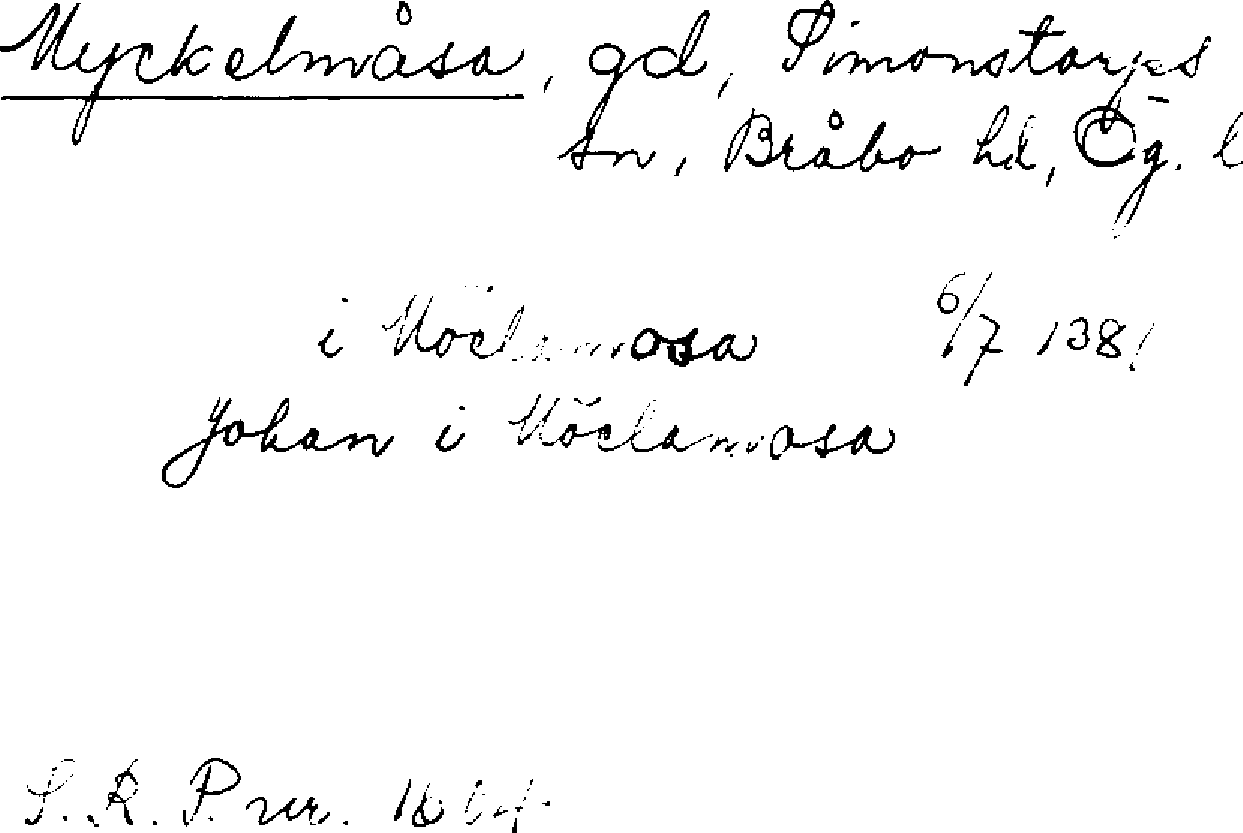 Myckelmåsa, gd, Simonstorps
sn, Bråbo hd, Ög. l
i Möclamosa 6/7 1381
Johan i Möclamosa
S. R. P. nr.